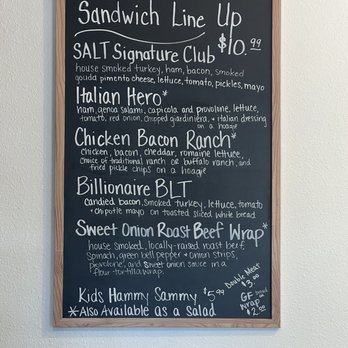 Sandwich Line Up
$10.99
SALT Signature Club
house smoked turkey, ham, bacon, smoked
gouda pimento cheese, lettuce, tomato, pickles, mayo
Italian Hero*
ham, genoa salami, capicola and provolone, lettuce,
tomato, red onion, chopped giardiniera, + italian dressing
on a hoagie
Chicken Bacon Ranch*
chicken, bacon, cheddar, romaine lettuce,
choice of traditional ranch or buffalo ranch, and
fried pickle chips on a hoagie
Billionaire BLT
candied bacon, smoked turkey, lettuce, tomato
+ chipotle mayo on toasted sliced white bread
Sweet Onion Roast Beef Wrap*
house smoked, locally-raised roast beef,
spinach, green bell pepper + onion strips,
provolone, and sweet onion sauce in a
flour tortilla wrap.
Double Meat
$3.00
GF bread
or
wrap
$2.00
Kids Hammy Sammy $5.99
*Also Available as a salad